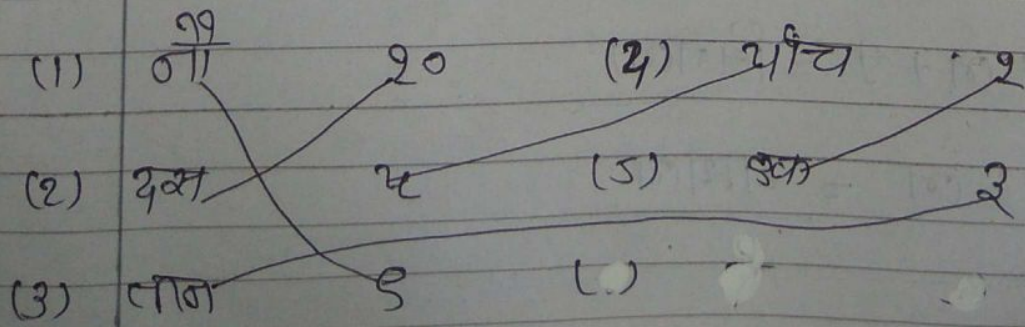 (1) नौ १० (४) पाँच १
(२) दस ५ (5) एक ३
(३) तीन ९ ( )